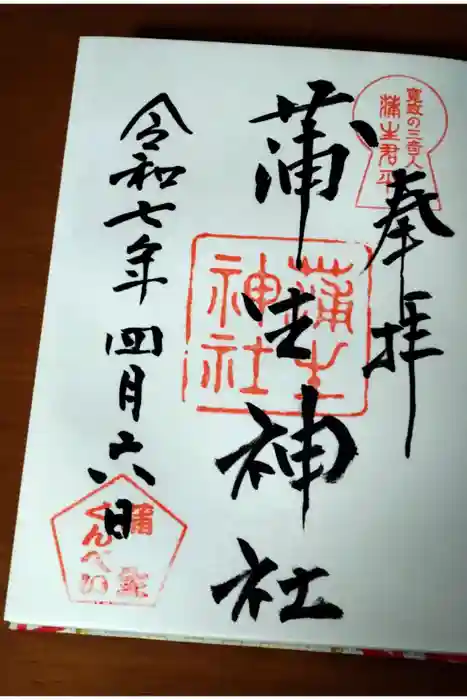 寛政の三奇人
蒲生君平
奉拝
蒲生神社
蒲生
神社
令和七年四月六日
くんぺい